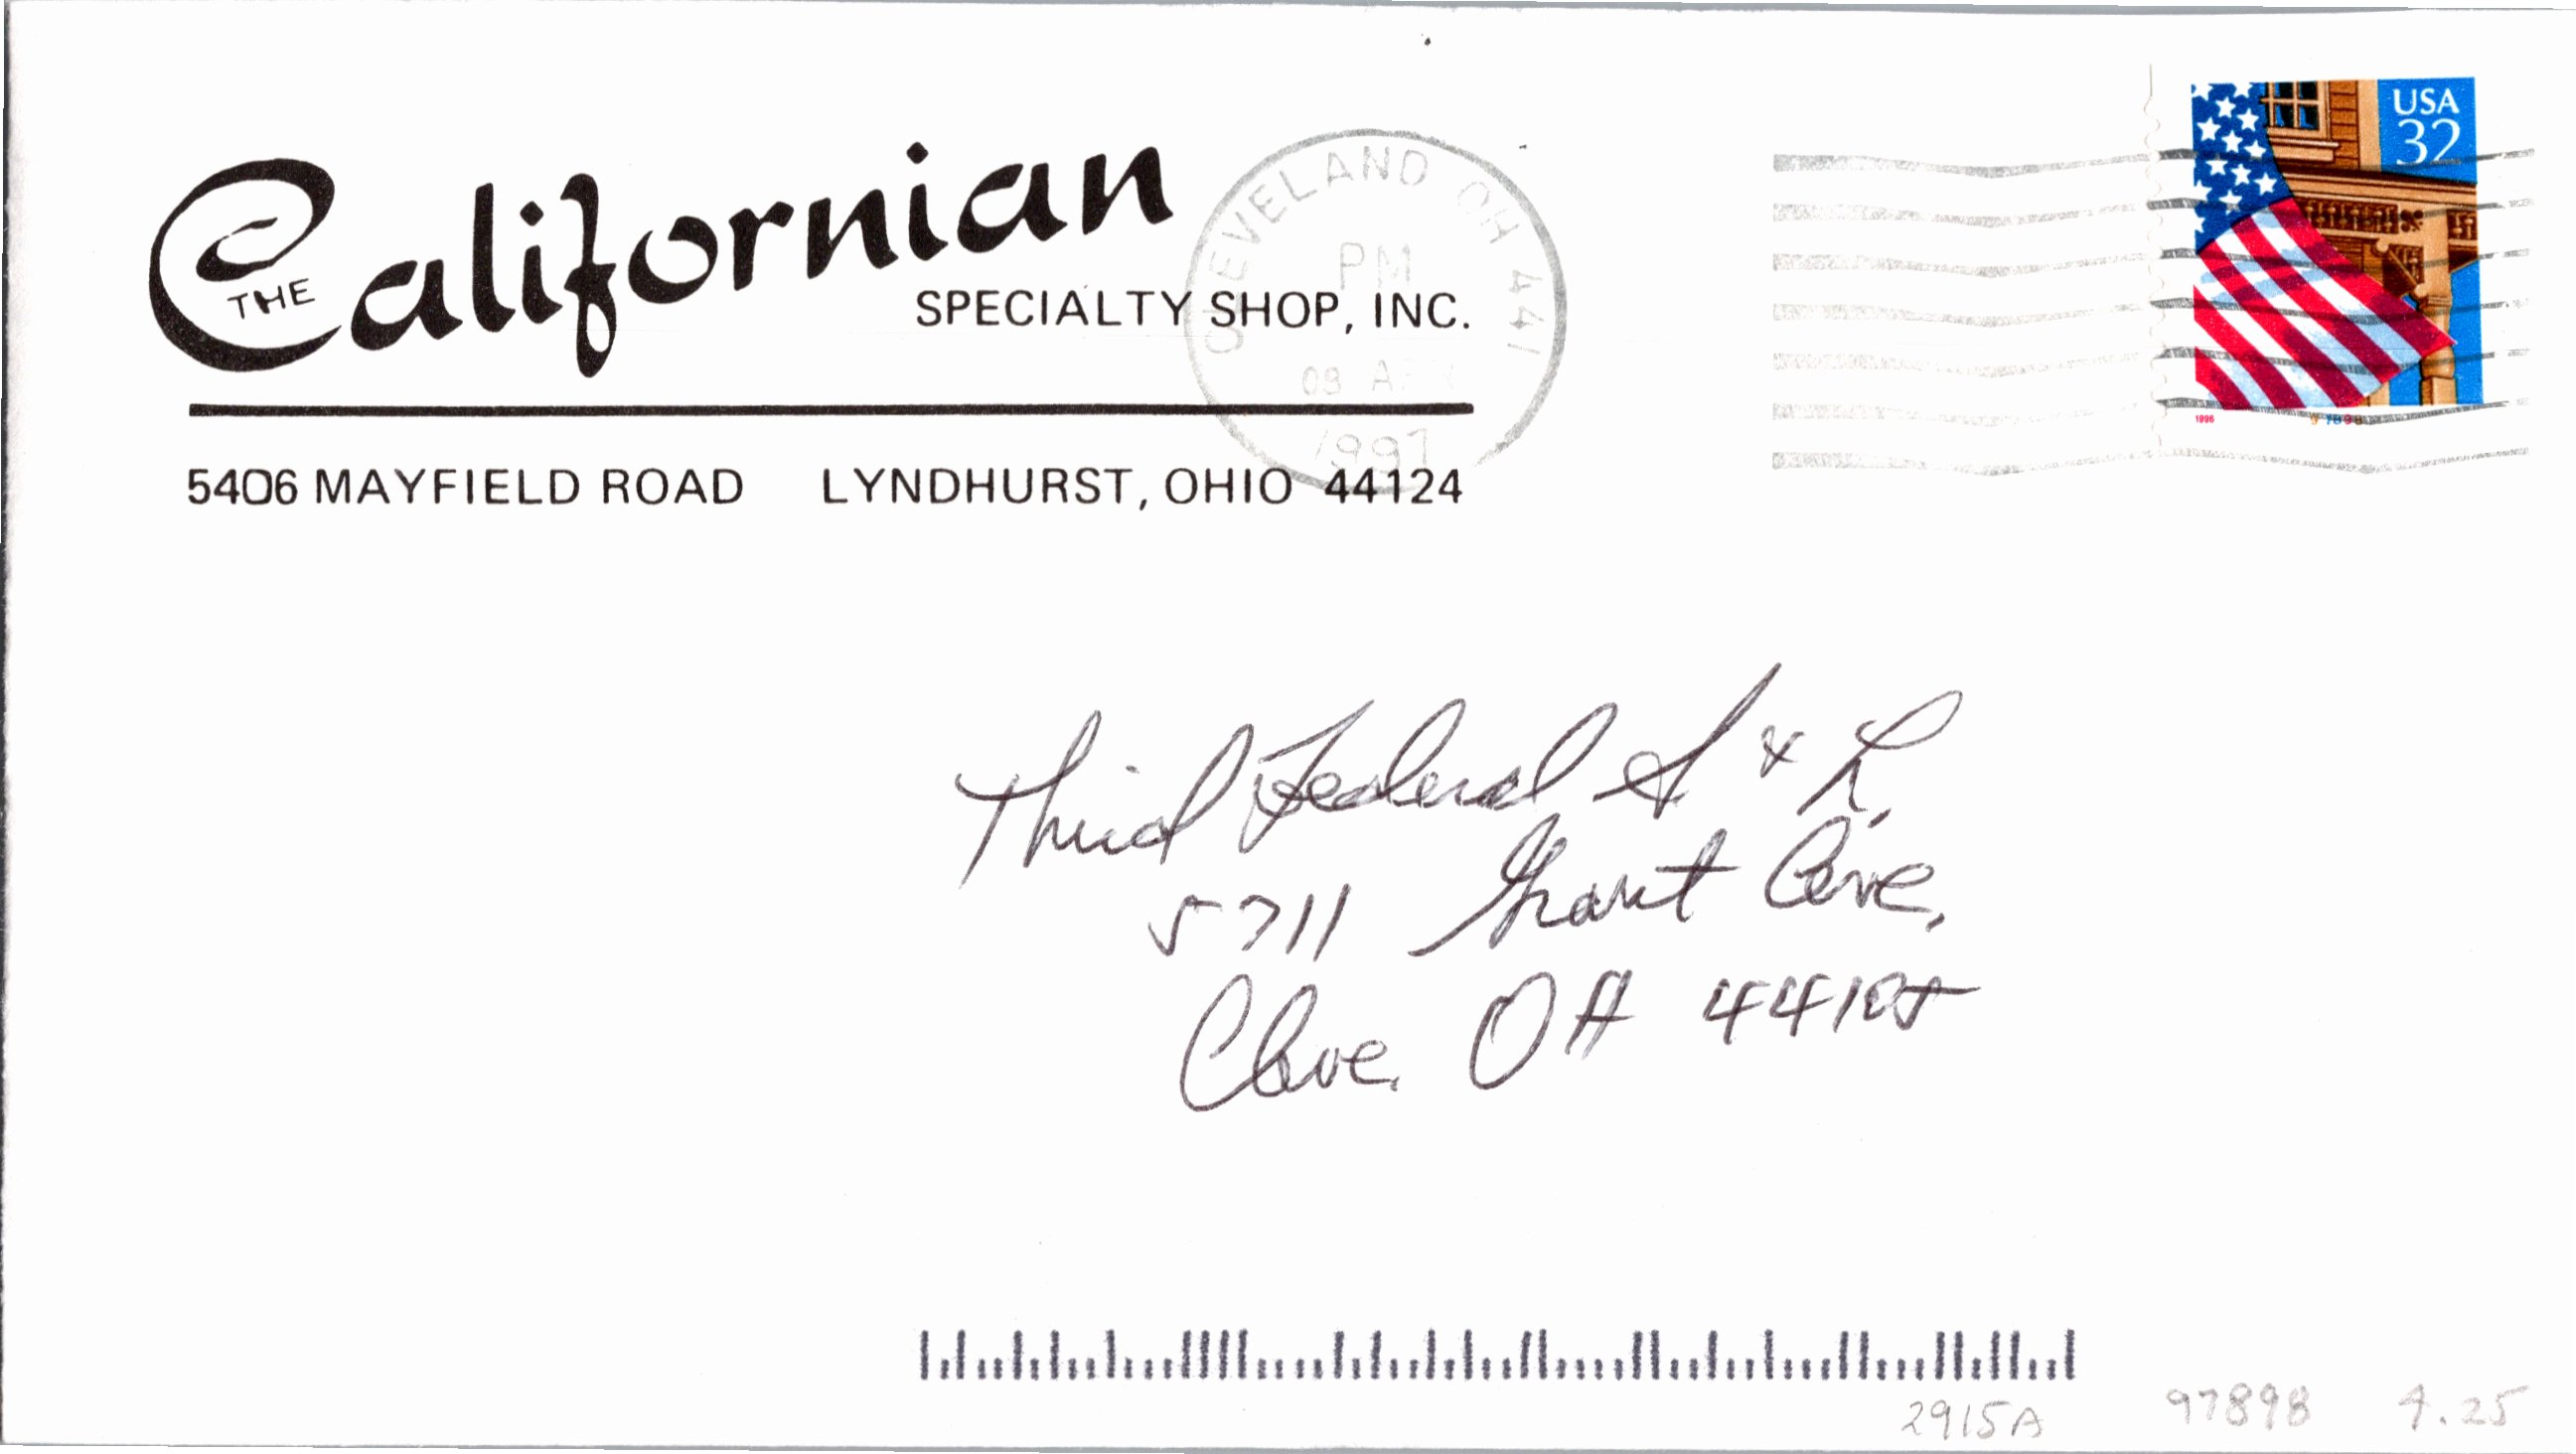 THE Californian
SPECIALTY SHOP, INC.
5406 MAYFIELD ROAD LYNDHURST, OHIO 44124
CLEVELAND OH 441
PM
09 APR
1997
USA
32
1996
97898
Third Federal S & L.
5711 Grant Ave.
Cleve. OH 44105
2915A 97898 4.25